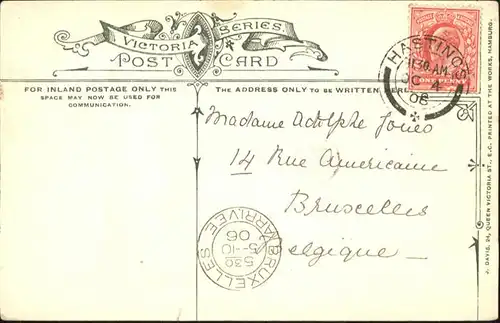 VICTORIA SERIES
POST CARD
FOR INLAND POSTAGE ONLY THIS
SPACE MAY NOW BE USED FOR
COMMUNICATION.
THE ADDRESS ONLY TO BE WRITTEN HERE
HASTINGS
11.30 AM
OC 4
06
ONE PENNY
Madame Adolphe Jones
14 Rue Americaine
Bruxelles
Belgique
BRUXELLES
5-10
06
ARRIVEE
J. DAVIS, 24, QUEEN VICTORIA ST., E.C. PRINTED AT THE WORKS, HAMBURG.